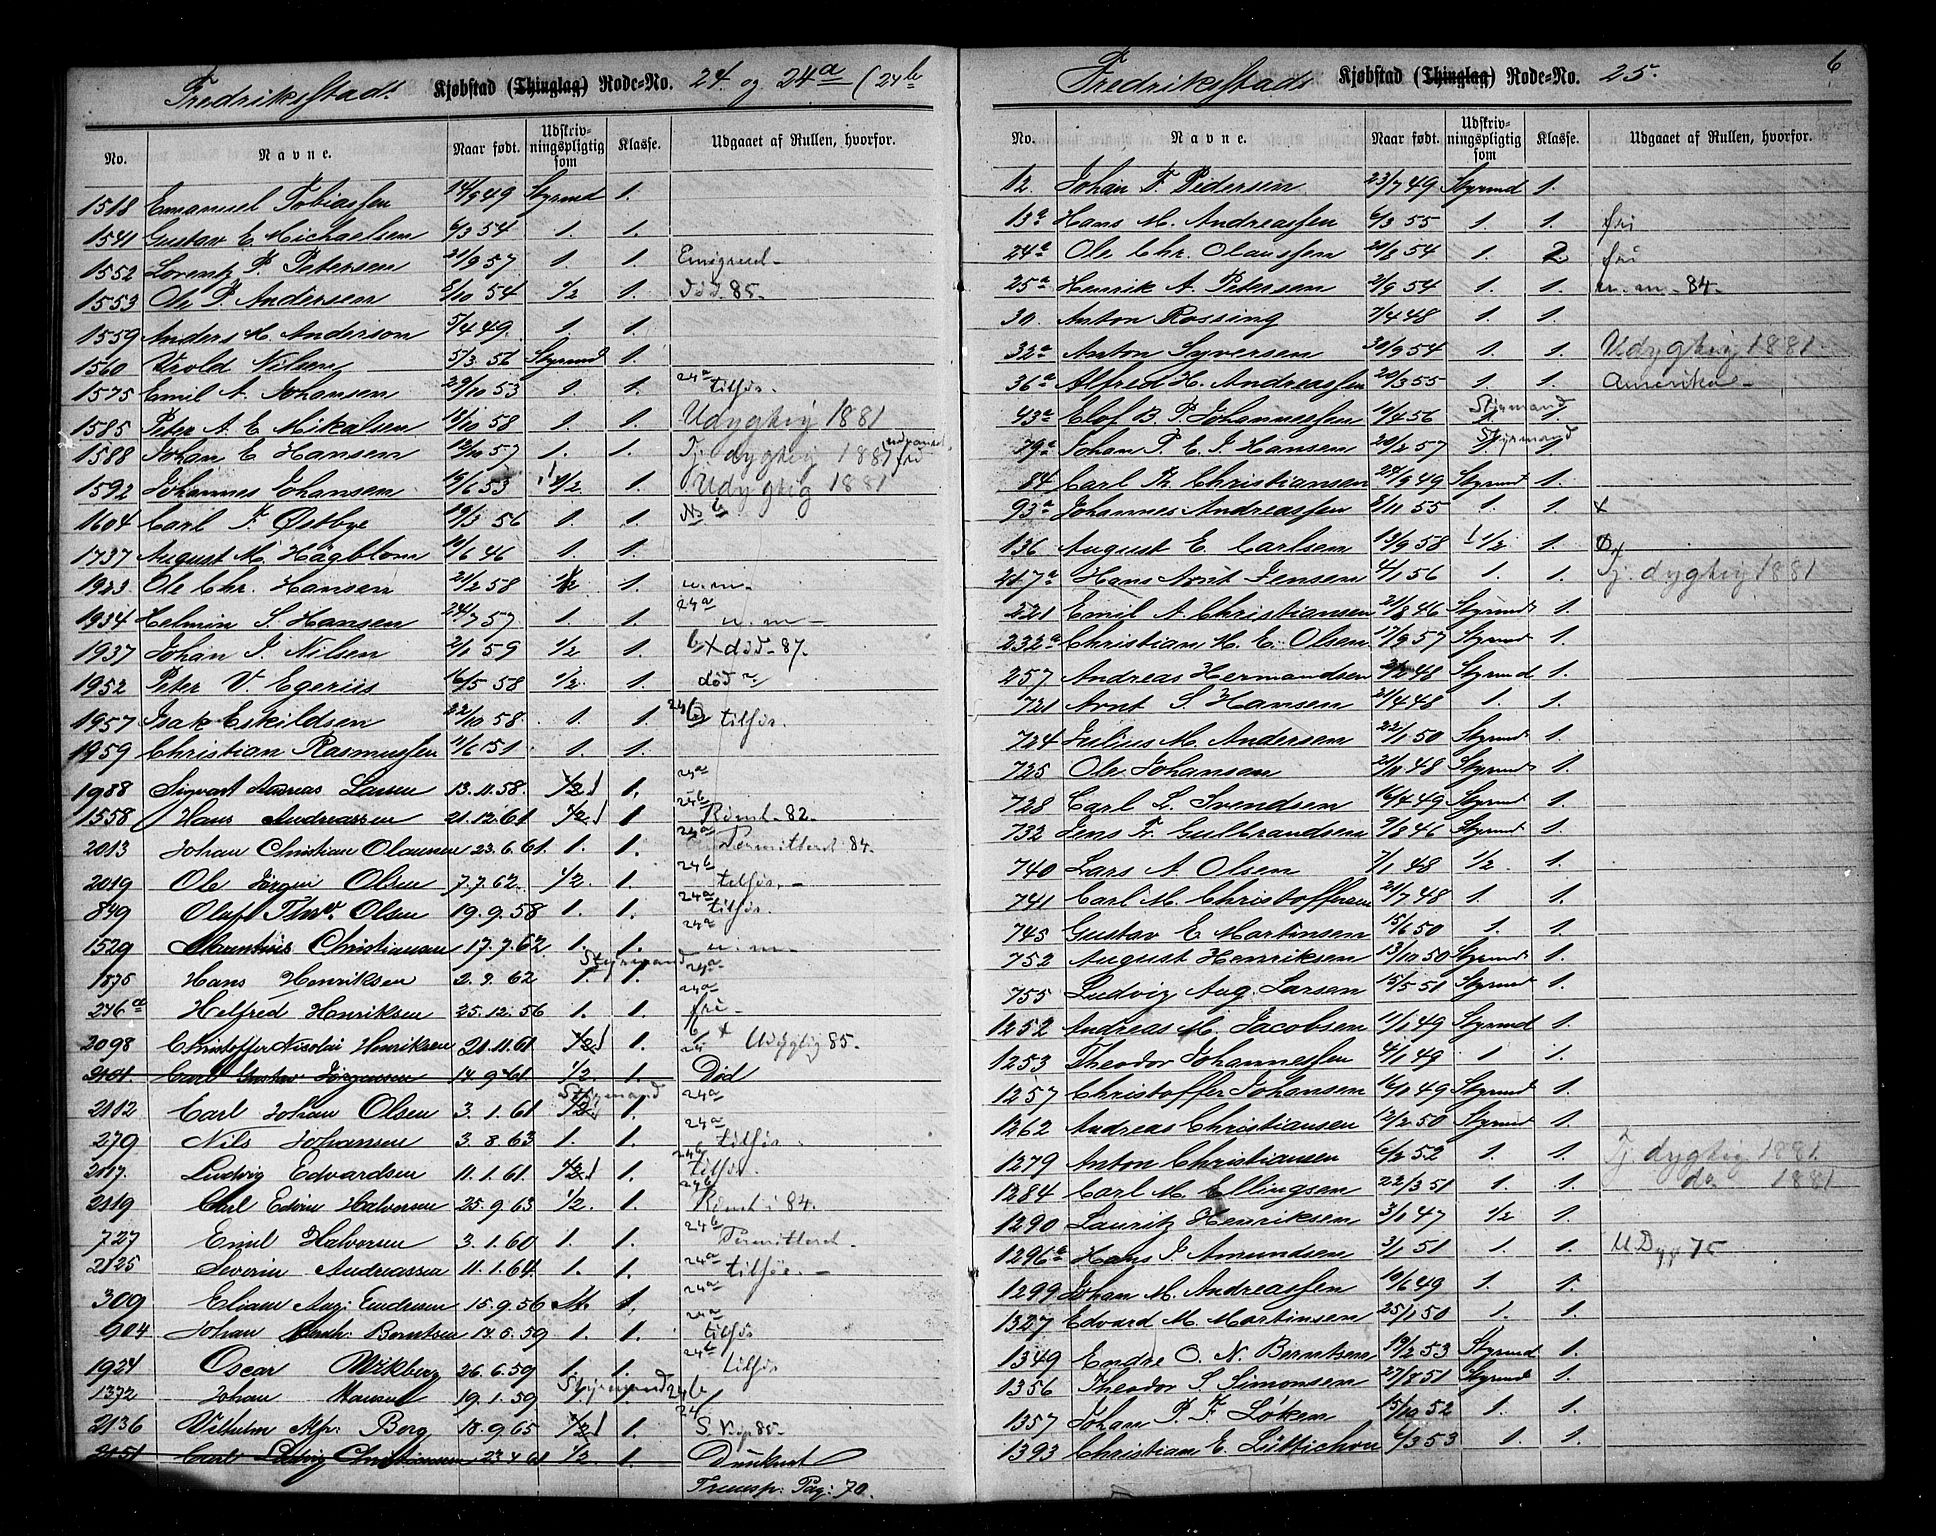 Fredrikstads Kjøbstad (Thinglag) Rode=No. 24 og 24a (24b
No. Navne. Naar født. Udskrivningspligtig som Klasse. Udgaaet af Rullen, hvorfor.
1518 Emanuel Tobiassen 14/9 49 Styrmd 1.
1541 Gustav E Michaelsen 6/3 54 1. 1.
1552 Lorentz P. Petersen 21/9 57 1. 1. Emigreret
1553 Ole P. Andersen 5/10 54 1/2 1. Död. 85.
1559 Anders M. Anderson 5/4 49. 1 1.
1560 Vrold Nilsen 5/3. 56 Styrmd 1.
1575 Emil A. Johansen 29/10 53 1. 1. 24a tilsös.
1585 Peter A. E Mikalsen 18/10 58 1. 1. Udygtig 1881
1588 Johan E Hansen 12/10 57 1. 1. Tj. dygtig 1881 fri
1592 Johannes Johansen 19/6 53 1/2 1. Udygtig 1881
1604 Carl F. Østbye 19/3 56 1. 1.
1737 August M. Hägblom 10/6 46 1. 1.
1923. Ole Chr. Hansen 21/2 58 1/2 1. u.m.
1934 Helmin S. Hansen 24/7 57 1. 1. 24a u.m
1937 Johan J. Nilsen 2/1 59 1/2 1. b x död. 87.
1952 Peter V. Egeriis 16/5 58 1/2. 1. död
1957 Isak Eskildsen 22/10 58. 1. 1. 24b tilsös.
1959 Christian Rasmussen 11/6 51 1. 1.
1988 Sigvart Andreas Larsen 13.11.58. 1/2 1. 24a
1558 Hans Andreassen 21.12.61 1/2 1 24b Römt. 82.
2013 Johan Christian Olausen 23.6.61. 1. 1. 24a Permitteret 84.
2019 Ole Jörgen Olsen 7.7.62. 1/2. 1. 24b tilsös.
849 Oluf Thv. Olsen 19.9.58 1. 1. 24a tilsös.
1529 Mauritius Christiansen 17.7.62 1. 1. 24a u.m.
1875 Hans Henriksen 2.9.62 Styrmand 1. 1. 24a
276a Helfred Henriksen 25.12.56 1. 1. 24a fri
2098 Christoffer Nicolai Henriksen 21.11.61 1/2 1. b x Udygtig 85.
2101. Carl Gustav Jörgensen 14.9.61 1/2. 1. 24 Död
2112 Carl Johan Olsen 3.1.61 Styrmand 1/2 1. 24a
279 Nils Johansen 3.8.63 1. 1. 24a tilsös.
2117. Ludvig Edvardsen 11.1.61. 1/2 1. 24b tilsös.
2119 Carl Edvin Halvorsen 25.9.63 1/2. 1. 24b Römt i 84.
727 Emil Halvorsen 3.1.60 1. 1. 24b Permitteret
2125 Severin Andreassen 11.1.64. 1. 1. 24a tilsös.
309 Eliam Aug: Endresen 15.9.56 M. 1. 24a
904 Johan Berntsen 14.6.59 1. 1. 24a tilsös
1924 Oscar Wikberg 26.6.59 1. 1. 24b tilsös
1372 Johan Hansen 19.1.59 Styrmand 1. 1. 24b
2136 Vilhelm Alfr: Berg 18.9.65 1/2 1. 24
2151 Carl Ludvig Christiansen 23.4.61 1/2. 1. Druknet
Transp: Pag: 70.
Fredrikstads Kjøbstad (Thinglag) Rode=No. 25. 6
No. Navne. Naar født. Udskrivningspligtig som Klasse. Udgaaet af Rullen, hvorfor.
12. Johan F. Pedersen 23/7 49 Styrmd 1.
13a Hans M. Andreassen 6/3 55 1. 1. fri
24a Ole Chr. Olaussen 20/8 54 1. 2 fri
25a Henrik A. Petersen 2/9 54 1. 1. u.m. 84.
30. Anton Rossing 7/4 48 1. 1.
32a Anton Syversen 30/9 54 1. 1. Udygtig 1881.
36a Alfred H. Andreassen 20/3 55 1. 1. Amerika
43a Elof B. P. Johannessen 10/4 56 Styrmand 1
79a Johan P. E. J. Hansen 20/2 57 Styrmand 1
84 Carl Th. Christiansen 24/9 49 Styrmd 1.
93a Johannes Andreassen 8/11 55 1. 1. x
136 August E. Carlsen 13/9 58 1/2 1.
217a Hans Arnt Jensen 4/1 56 1. 1. Tj. dygtig 1881
221 Emil A. Christiansen 21/8 46 Styrmd 1.
232a Christian H. E. Olsen 17/9 57 Styrmd 1.
257 Andreas Hermandsen 48 Styrmd 1.
721 Arnt S. Hansen 21/4 48 1. 1.
724 Julius M. Andersen 22/1 50 Styrmd 1.
725 Ole Johansen 21/10 48 Styrmd 1.
728 Carl L. Svendsen 16/4 49 Styrmd 1.
732 Jens Fr. Gulbrandsen 9/8 46 Styrmd 1.
740 Lars A Olsen 7/1 48 1/2 1.
741 Carl M. Christoffersen 21/7 48 1. 1.
745 Gustav E Martinsen 15/6 50 1. 1.
752 August Henriksen 13/10 50 Styrmd 1.
755 Ludvig Aug. Larsen 15/5 51 Styrmd 1.
1252 Andreas M. Jacobsen 11/1 49 Styrmd 1.
1253 Theodor Johannessen 4/1 49 1. 1.
1257 Christoffer Johansen 16/11 49 Styrmd 1.
1262 Andreas Christiansen 12/2 50 Styrmd 1.
1279 Anton Christiansen 6/2 52 1. 1. Tj. dygtig 1881
1284 Carl M. Ellingsen 22/3 51 1. 1. do 1881
1290 Lauritz Henriksen 3/1 47 1/2 1.
1296a Hans J. Amundsen 3/1 51 1. 1. UDygt 75
1299 Johan M. Andreassen 19/6 49 1. 1.
1327 Edvard M. Martinsen 25/1 50 1. 1.
1349 Endre O. N. Berntsen 19/2 53 Styrmd 1.
1356 Theodor S. Simonsen 27/8 51 Styrmd 1.
1357 Johan P. F. Løken 15/10 52 1. 1.
1393 Christian E. Lüttichou 6/3 53 1. 1.